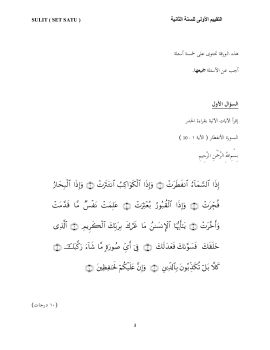 SULIT ( SET SATU )
التقييم الأولى للسنة الثانية
هذه الورقة تحتوى على خمسة أسئلة
أجب عن الأسئلة جميعها.
السؤال الأول
إقرأ الآيات الآتية بقراءة الحدر
السورة الانفطار ( الآية ١ - 10 )
بِسْمِ اللهِ الرَّحْمنِ الرَّحِيمِ
إِذَا ٱلسَّمَآءُ ٱنفَطَرَتْ ۝ وَإِذَا ٱلْكَوَاكِبُ ٱنتَثَرَتْ ۝ وَإِذَا ٱلْبِحَارُ
فُجِّرَتْ ۝ وَإِذَا ٱلْقُبُورُ بُعْثِرَتْ ۝ عَلِمَتْ نَفْسٌ مَّا قَدَّمَتْ
وَأَخَّرَتْ ۝ يَـٰٓأَيُّهَا ٱلْإِنسَـٰنُ مَا غَرَّكَ بِرَبِّكَ ٱلْكَرِيمِ ۝ ٱلَّذِى
خَلَقَكَ فَسَوَّىٰكَ فَعَدَلَكَ ۝ فِىٓ أَىِّ صُورَةٍ مَّا شَآءَ رَكَّبَكَ ۝
كَلَّا بَلْ تُكَذِّبُونَ بِٱلدِّينِ ۝ وَإِنَّ عَلَيْكُمْ لَحَـٰفِظِينَ ۝
(١٠ درجات)